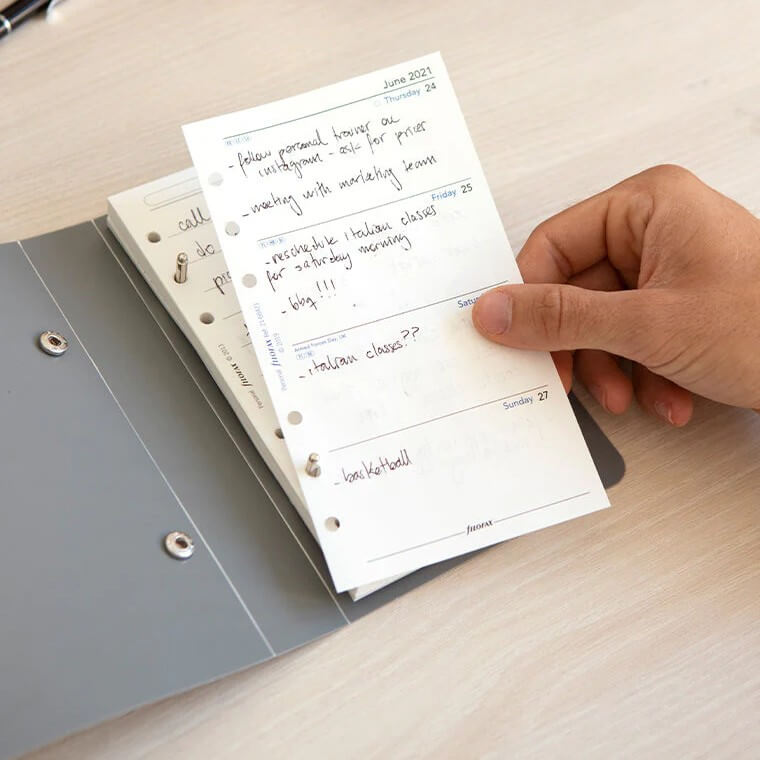 June 2021
Thursday 24
- follow personal trainer on
instagram - ask for prices
- meeting with marketing team
Friday 25
- reschedule italian classes
for saturday morning
- bbq!!!
Satu
Armed Forces Day, UK
- italian classes??
Sunday 27
- basketball
filofax
Personal filofax © 2013
call
do
Personal filofax © 2013